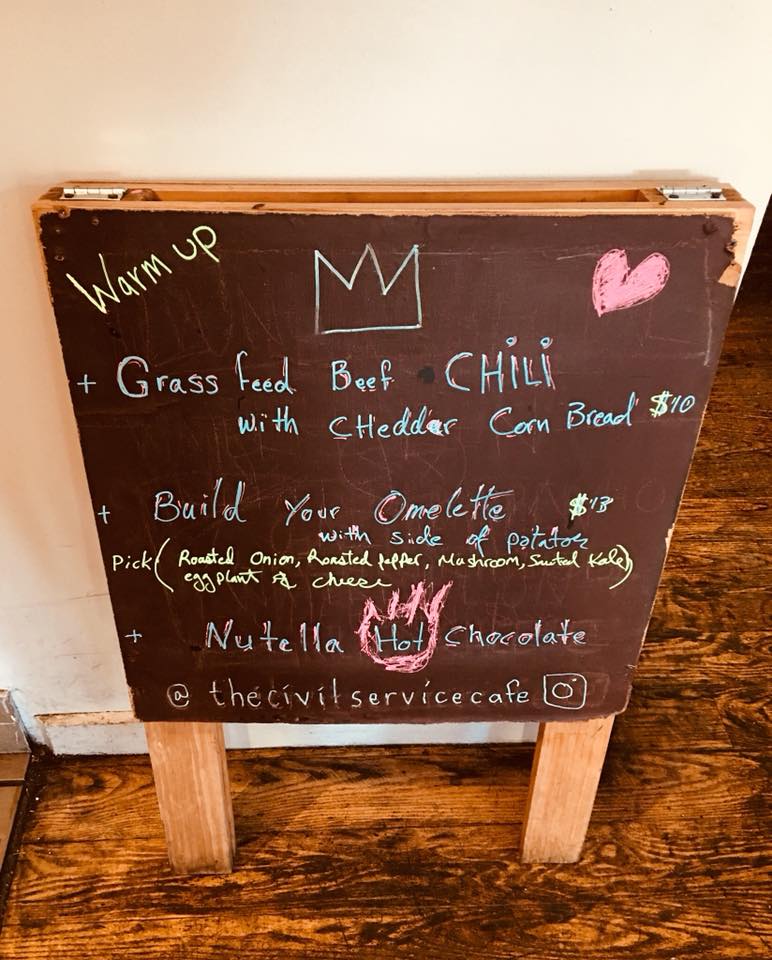 Warm up
+ Grass feed Beef CHiLi
with CHeddar Corn Bread $10
+ Build Your Omelette $13
with side of potatoes
Pick (Roasted Onion, Roasted pepper, Mushroom, Sauted Kale)
eggplant & cheese
+ Nutella Hot Chocolate
@thecivilservicecafe